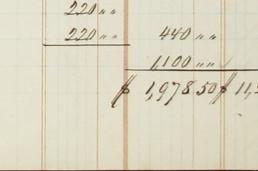 220 〃 〃
220 〃 〃 440 〃 〃
1,100 〃 〃
$ 1,978 50 $ 11,